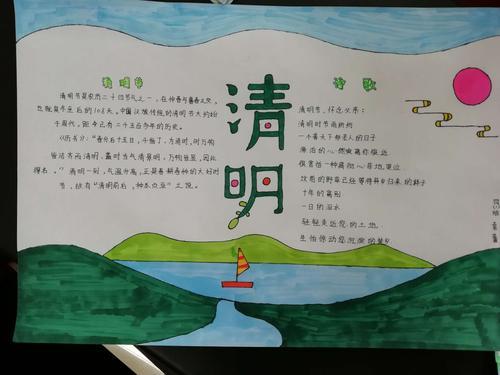 清明节
清明节是农历二十四节气之一，在仲春与暮春之交，
也就是冬至后的108天。中国汉族传统的清明节大约始
于周代，距今已有二千五百多年的历史。
《历书》：“春分后十五日，斗指丁，为清明，时万物
皆洁齐而清明，盖时当气清景明，万物皆显，因此
得名。”清明一到，气温升高，正是春耕春种的大好时
节，故有“清明前后，种瓜点豆”之说。
清明
诗歌
清明节，怀念父亲：
清明时节雨纷纷
一个普天下都老人的日子
潮泊的心 燃疯离你很远
很害怕一种痛彻心
坟茔的野草已经等待异乡归来的稚子
十年的离别
一日的泪水
轻轻走近您的土地
生怕惊动您沉寂的梦乡